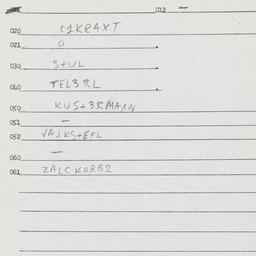 012 —
020 C1KRAXT
021 0
030 S+UL
040 TEL3RL
050 KUS+3RMANN
051 —
052 VAJKS+EFL
060 —
061 ZALCKORB2